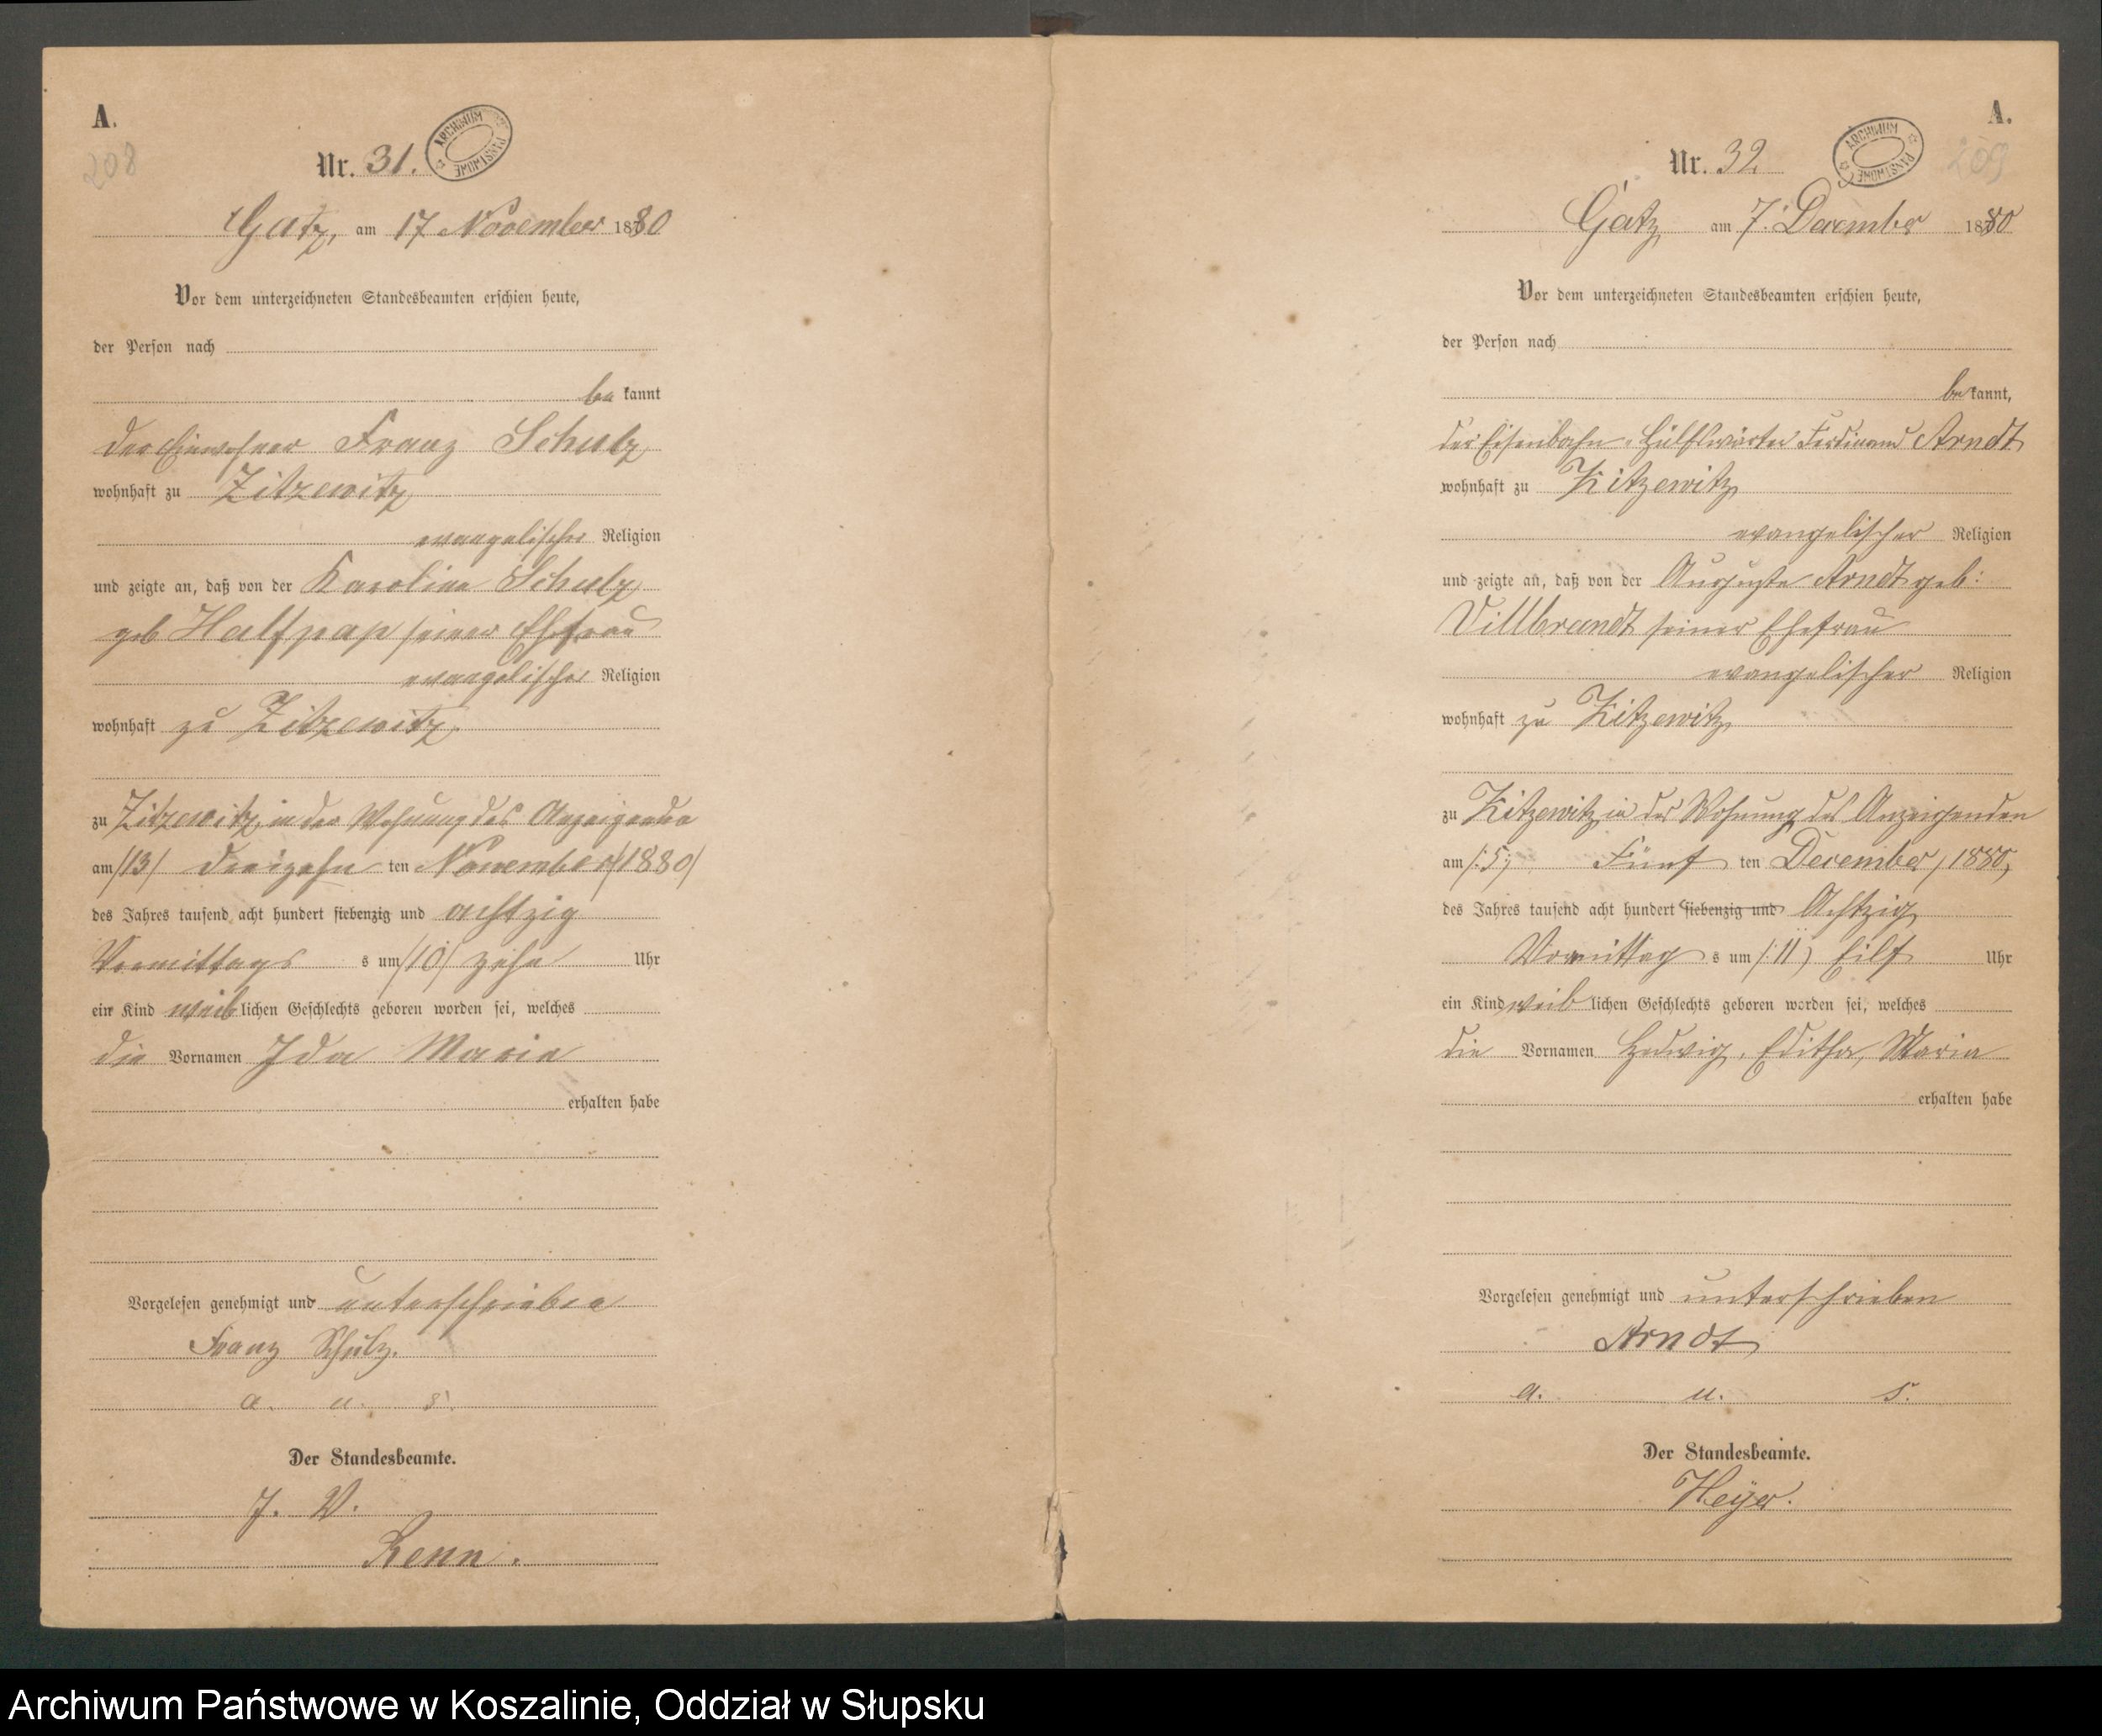 A.
208
Nr. 31.
ARCHIWUM PAŃSTWOWE
Gatz, am 17 November 1880
Vor dem unterzeichneten Standesbeamten erschien heute,
der Person nach
be kannt
der Einwohner Franz Schulz
wohnhaft zu Zitzewitz
evangelischer Religion
und zeigte an, daß von der Karoline Schulz
geb Halfpap seiner Ehefrau
evangelischer Religion
wohnhaft zu Zitzewitz
zu Zitzewitz in der Wohnung des Anzeigenden
am /13/ dreizehn ten November /1880/
des Jahres tausend acht hundert siebenzig und achtzig
Vormittags s um /10/ zehn Uhr
ein Kind weib lichen Geschlechts geboren worden sei, welches
die Vornamen Ida Maria
erhalten habe
Vorgelesen genehmigt und unterschrieben
Franz Schulz.
a. u. s.
Der Standesbeamte.
J. V.
Renn.
A.
209
Nr. 32
ARCHIWUM PAŃSTWOWE
Gatz am 7. December 1880
Vor dem unterzeichneten Standesbeamten erschien heute,
der Person nach
be kannt,
der Eisenbahn-Hülfswärter Ferdinand Arndt
wohnhaft zu Zitzewitz
evangelischer Religion
und zeigte an, daß von der Auguste Arndt geb:
Villbrandt seiner Ehefrau
evangelischer Religion
wohnhaft zu Zitzewitz
zu Zitzewitz in der Wohnung des Anzeigenden
am /:5:/ Fünf ten December /1880,
des Jahres tausend acht hundert siebenzig und Achtzig
Vormittag s um /:11) Eilf Uhr
ein Kind weib lichen Geschlechts geboren worden sei, welches
die Vornamen Hedwig, Editha, Maria
erhalten habe
Vorgelesen genehmigt und unterschrieben
Arndt
a. u. s.
Der Standesbeamte.
Heÿer.
Archiwum Państwowe w Koszalinie, Oddział w Słupsku